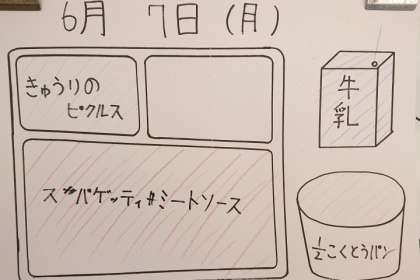 6月 7日(月)
きゅうりの
ピクルス
牛
乳
スパゲッティ#ミートソース
1/2こくとうパン